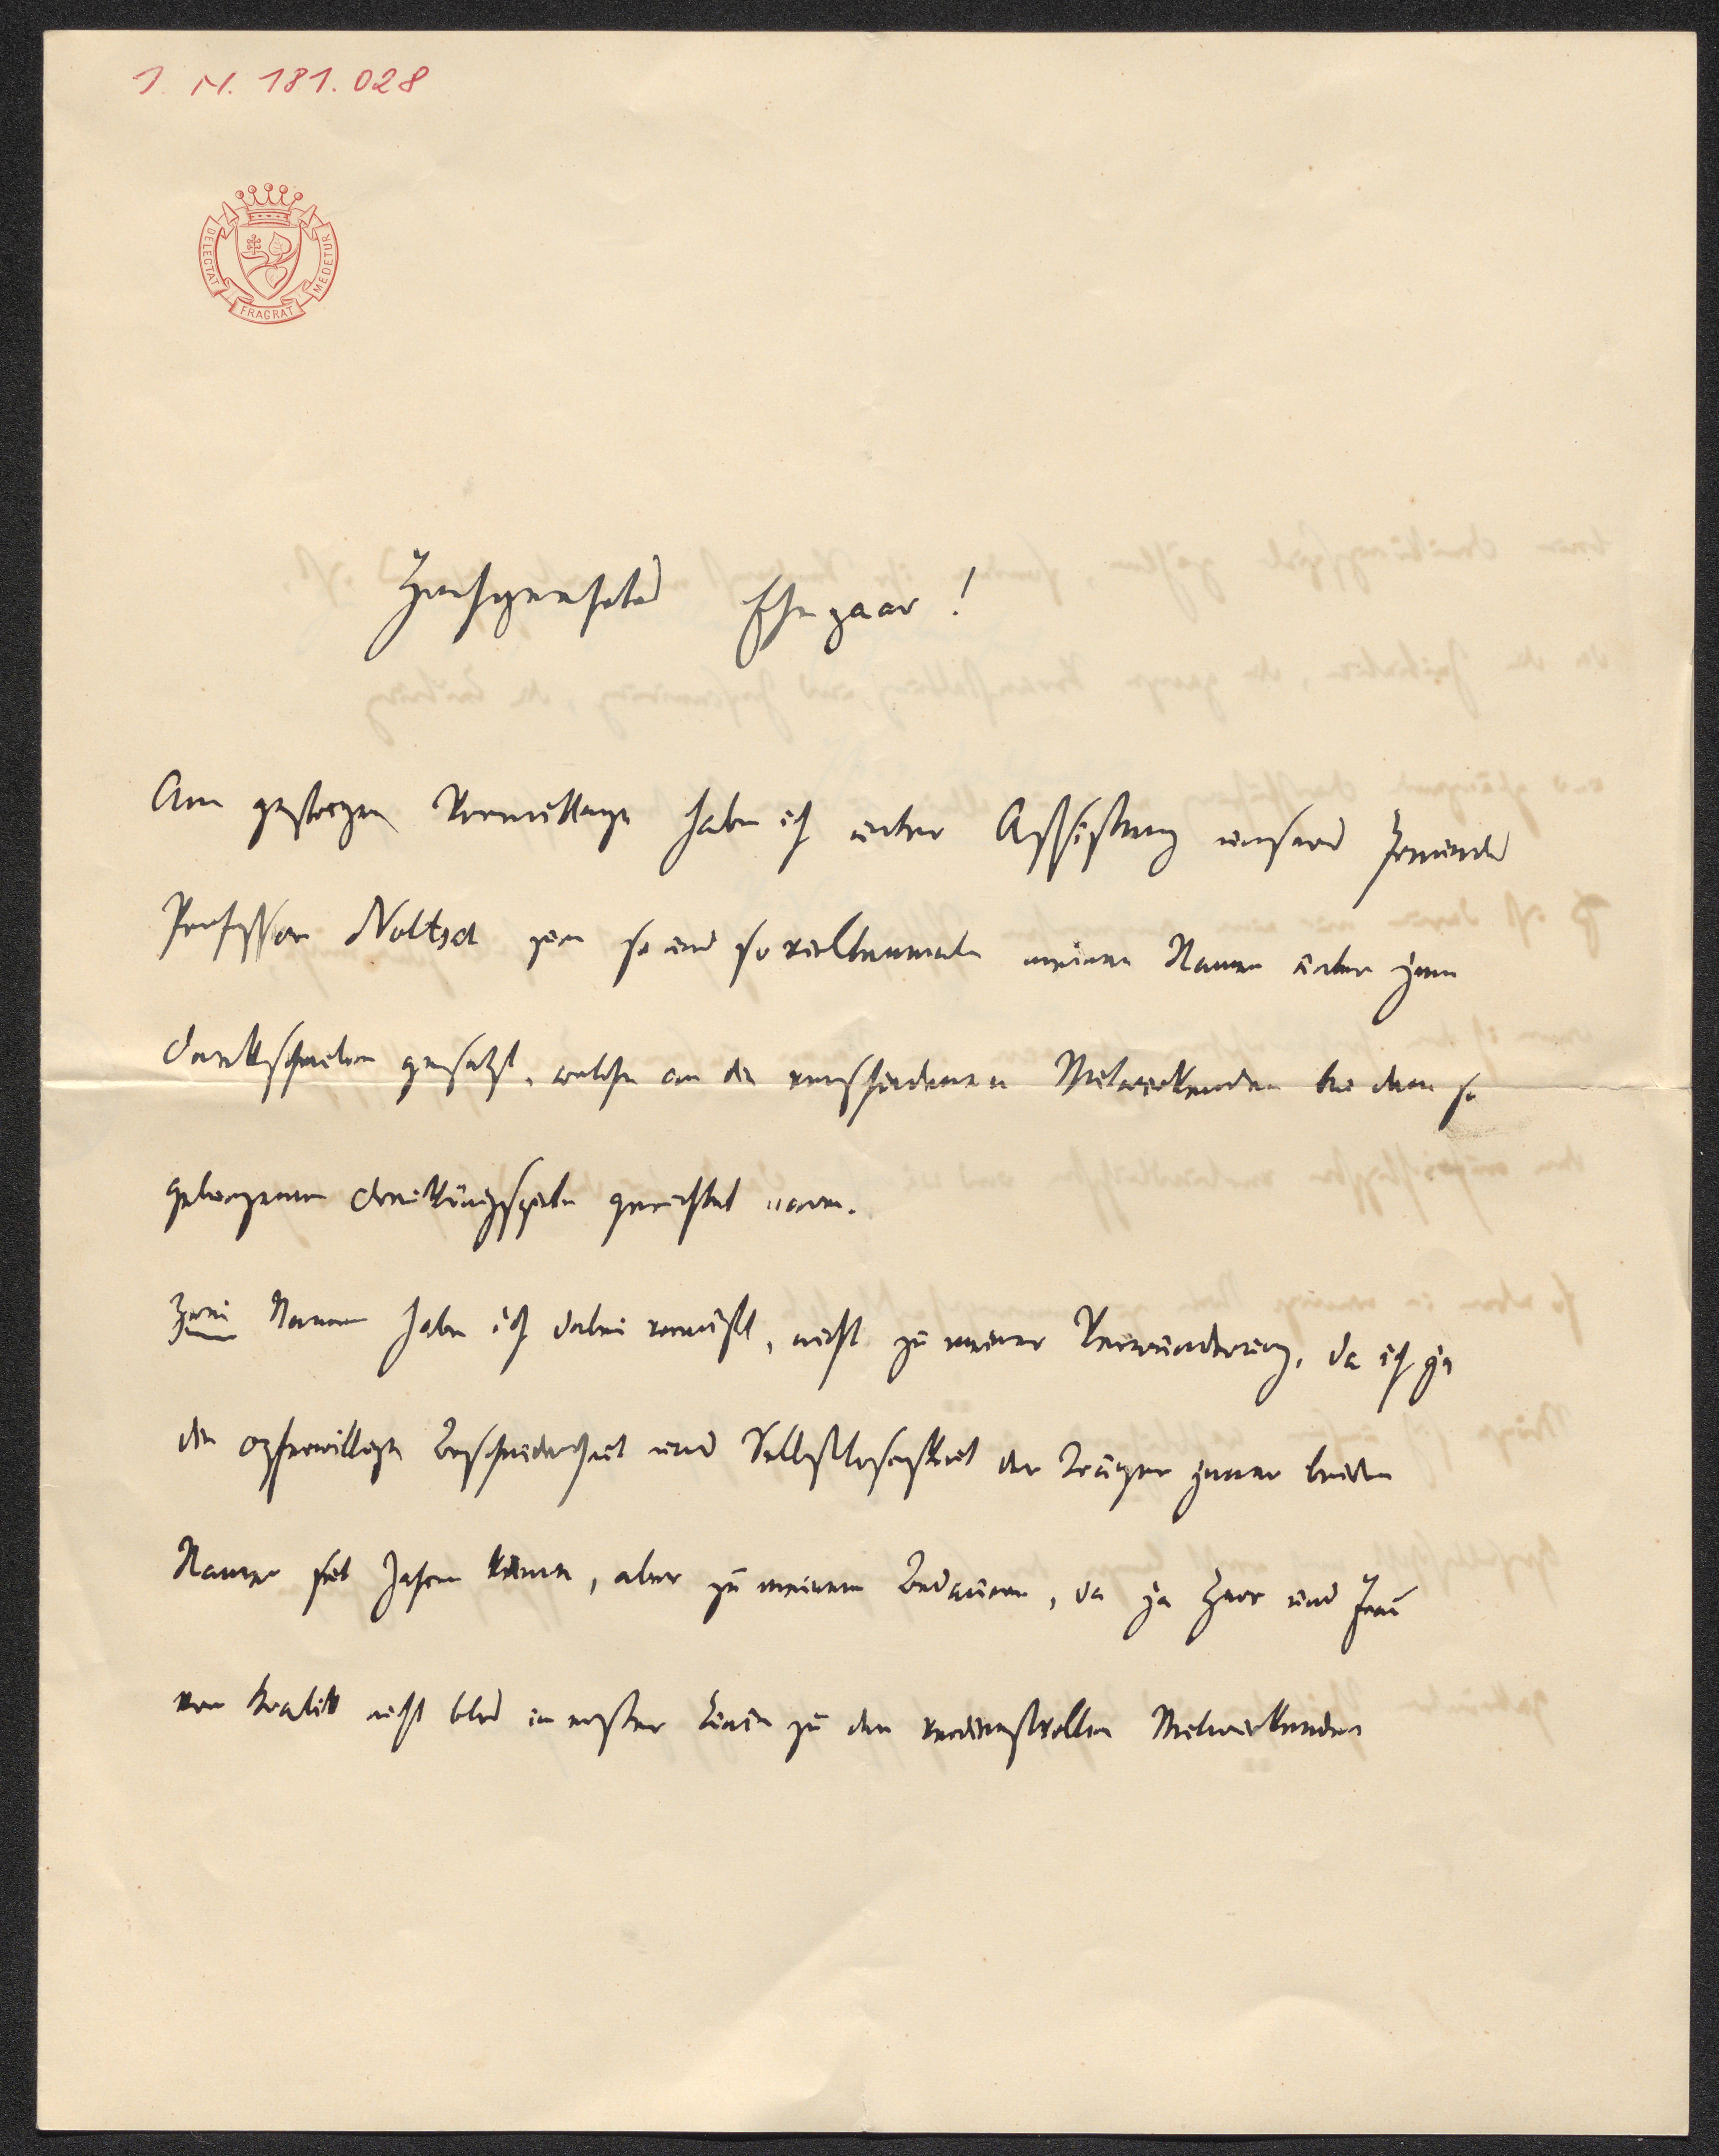 J. N. 181.028
DELECTAT FRAGRAT MEDETUR
Hochgeehrtes Ehepaar!
Am gestrigen Vormittage habe ich unter Assistenz unseres Freundes
Professor Noltsch zum so und so vieltenmale meinen Namen unter jene
Dankschreiben gesetzt, welche an die verschiedenen Mitwirkenden bei dem so
gelungenen Dreikönigsspiele gerichtet waren.
Zwei Namen habe ich dabei vermißt, nicht zu meiner Verwunderung, da ich ja
die opferwillige Bescheidenheit und Selbstlosigkeit der Träger jener beiden
Namen seit Jahren kenne, aber zu meinem Bedauern, da ja Herr und Frau
von Kralik nicht blos in erster Linie zu den verdienstvollen Mitwirkenden